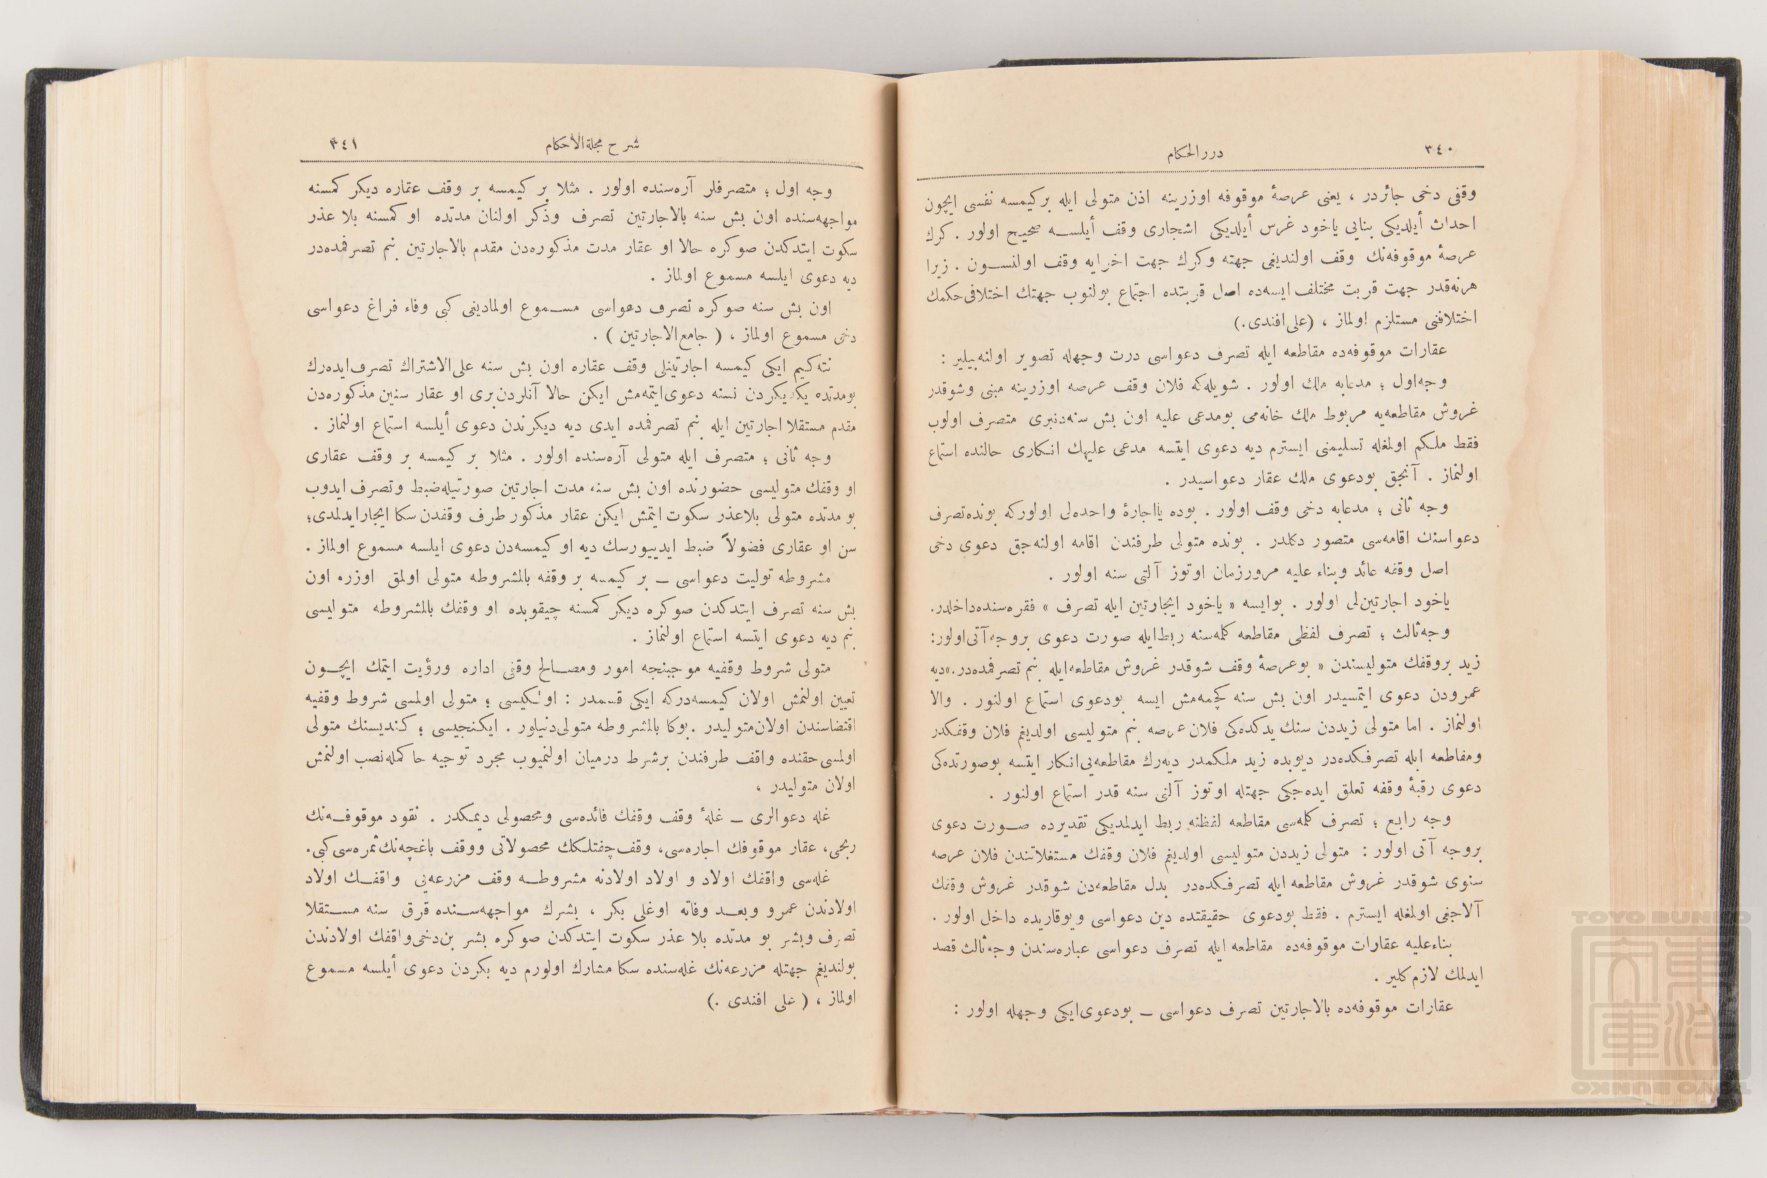 ٣٤٠
درر الحكام
وقفى دخى جائزدر ، يعنى عرصۀ موقوفه اوزرينه اذن متولى ايله بركيمسه نفسى ايچون
احداث أيلديكى بنايى ياخود غرس أيلديكى اشجارى وقف أيلسه صحيح اولور . كرك
عرصۀ موقوفه‌نك وقف اولنديغى جهته وكرك جهت اخرايه وقف اولنسون . زيرا
هرنه‌قدر جهت قربت مختلف ايسه‌ده اصل قربتده اجتماع بولنوب جهتك اختلافى حكمك
اختلافنى مستلزم اولماز ، (على افندى.)
عقارات موقوفه‌ده مقاطعه ايله تصرف دعواسى درت وجهله تصوير اولنه‌بيلير :
وجه اول ؛ مدعابه ملك اولور . شويله‌كه فلان وقف عرصه اوزرينه مبنى وشوقدر
غروش مقاطعه‌يه مربوط ملك خانه‌مى بومدعى عليه اون بش سنه‌دنبرى متصرف اولوب
فقط ملكم اولمغله تسليمنى ايسترم ديه دعوى ايتسه مدعى عليهك انكارى حالنده استماع
اولنماز . آنجق بودعوى ملك عقار دعواسيدر .
وجه ثانى ؛ مدعابه دخى وقف اولور . بوده يااجارۀ واحده‌لى اولوركه بونده‌تصرف
دعواسنك اقامه‌سى متصور دكلدر . بونده متولى طرفندن اقامه اولنه‌جق دعوى دخى
اصل وقفه عائد وبناء عليه مرورزمان اوتوز آلتى سنه اولور .
ياخود اجارتين‌لى اولور . بوايسه « ياخود ايجارتين ايله تصرف » فقره‌سنده‌داخلدر.
وجه ثالث ؛ تصرف لفظى مقاطعه كلمه‌سنه ربط ايله صورت دعوى بروجه آتى اولور:
زيد بروقفك متوليسندن « بوعرصۀ وقف شوقدر غروش مقاطعه‌ايله بنم تصرفمده‌در.»ديه
عمرودن دعوى ايتمسيدر اون بش سنه كچمه‌مش ايسه بودعوى استماع اولنور . والا
اولنماز . اما متولى زيددن سنك يدكده‌كى فلان عرصه بنم متوليسى اولديغم فلان وقفكدر
ومقاطعه ايله تصرفكده‌در ديوبده زيد ملكمدر ديه‌رك مقاطعه‌يى انكار ايتسه بوصورتده‌كى
دعوى رقبۀ وقفه تعلق ايده‌جكى جهتله اوتوز آلتى سنه قدر استماع اولنور .
وجه رابع ؛ تصرف كلمه‌سى مقاطعه لفظنه ربط ايدلمديكى تقديرده صورت دعوى
بروجه آتى اولور : متولى زيددن متوليسى اولديغم فلان وقفك مستغلاتندن فلان عرصه
سنوى شوقدر غروش مقاطعه ايله تصرفكده‌در بدل مقاطعه‌دن شوقدر غروش وقفك
آلاجغى اولمغله ايسترم . فقط بودعوى حقيقتده دين دعواسى ويوقاريده داخل اولور .
بناءعليه عقارات موقوفه‌ده مقاطعه ايله تصرف دعواسى عباره‌سندن وجه ثالث قصد
ايدلمك لازم كلير .
عقارات موقوفه‌ده بالاجارتين تصرف دعواسى ــ بودعوى‌ايكى وجهله اولور :
شرح مجلة الاحكام
٣٤١
وجه اول ؛ متصرفلر آره‌سنده اولور . مثلا بر كيمسه بر وقف عقاره ديكر كمسنه
مواجهه‌سنده اون بش سنه بالاجارتين تصرف وذكر اولنان مدتده او كمسنه بلا عذر
سكوت ايتدكدن صوكره حالا او عقار مدت مذكوره‌دن مقدم بالاجارتين بنم تصرفمده‌در
ديه دعوى ايلسه مسموع اولماز .
اون بش سنه صوكره تصرف دعواسى مسموع اولماديغى كبى وفاء فراغ دعواسى
دخى مسموع اولماز ، ( جامع الاجارتين ) .
نته‌كيم ايكى كيمسه اجارتينلى وقف عقاره اون بش سنه على الاشتراك تصرف‌ايده‌رك
بومدتده يكديكردن نسنه دعوى‌ايتمه‌مش ايكن حالا آنلردن‌برى او عقار سنين مذكوره‌دن
مقدم مستقلا اجارتين ايله بنم تصرفمده ايدى ديه ديكرندن دعوى أيلسه استماع اولنماز .
وجه ثانى ؛ متصرف ايله متولى آره‌سنده اولور . مثلا بر كيمسه بر وقف عقارى
او وقفك متوليسى حضورنده اون بش سنه مدت اجارتين صورتيله‌ضبط وتصرف ايدوب
بو مدتده متولى بلاعذر سكوت ايتمش ايكن عقار مذكور طرف وقفدن سكا ايجارايدلمدى؛
سن او عقارى فضولاً ضبط ايدييورسك ديه او كيمسه‌دن دعوى ايلسه مسموع اولماز .
مشروطه توليت دعواسى ــ بر كيمسه بر وقفه بالمشروطه متولى اولمق اوزره اون
بش سنه تصرف ايتدكدن صوكره ديكر كمسنه چيقوبده او وقفك بالمشروطه متوليسى
بنم ديه دعوى ايتسه استماع اولنماز .
متولى شروط وقفيه موجبنجه امور ومصالح وقفى اداره ورؤيت ايتمك ايچون
تعيين اولنمش اولان كيمسه‌دركه ايكى قسمدر : اولكيسى ؛ متولى اولمسى شروط وقفيه
اقتضاسندن اولان‌متوليدر .بوكا بالمشروطه متولى‌دنيلور . ايكنجيسى ؛ كنديسنك متولى
اولمسى حقنده واقف طرفندن برشرط درميان اولنميوب مجرد توجيه حاكمله‌نصب اولنمش
اولان متوليدر ،
غله دعوالرى ــ غلۀ وقف وقفك فائده‌سى ومحصولى ديمكدر . نقود موقوفه‌نك
ربحى، عقار موقوفك اجاره‌سى، وقف‌چفتلكك محصولاتى ووقف باغچه‌نك‌ثمره‌سى‌كبى.
غله‌سى واقفك اولاد و اولاد اولادنه مشروطه وقف مزرعه‌يى واقفك اولاد
اولادندن عمرو وبعد وفاته اوغلى بكر ، بشرك مواجهه‌سنده قرق سنه مستقلا
تصرف وبشر بو مدتده بلا عذر سكوت ايتدكدن صوكره بشر بن‌دخى‌واقفك اولادندن
بولنديغم جهتله مزرعه‌نك غله‌سنده سكا مشارك اولورم ديه بكردن دعوى أيلسه مسموع
اولماز ، ( على افندى .)
TOYO BUNKO
東洋文庫
TOYO BUNKO